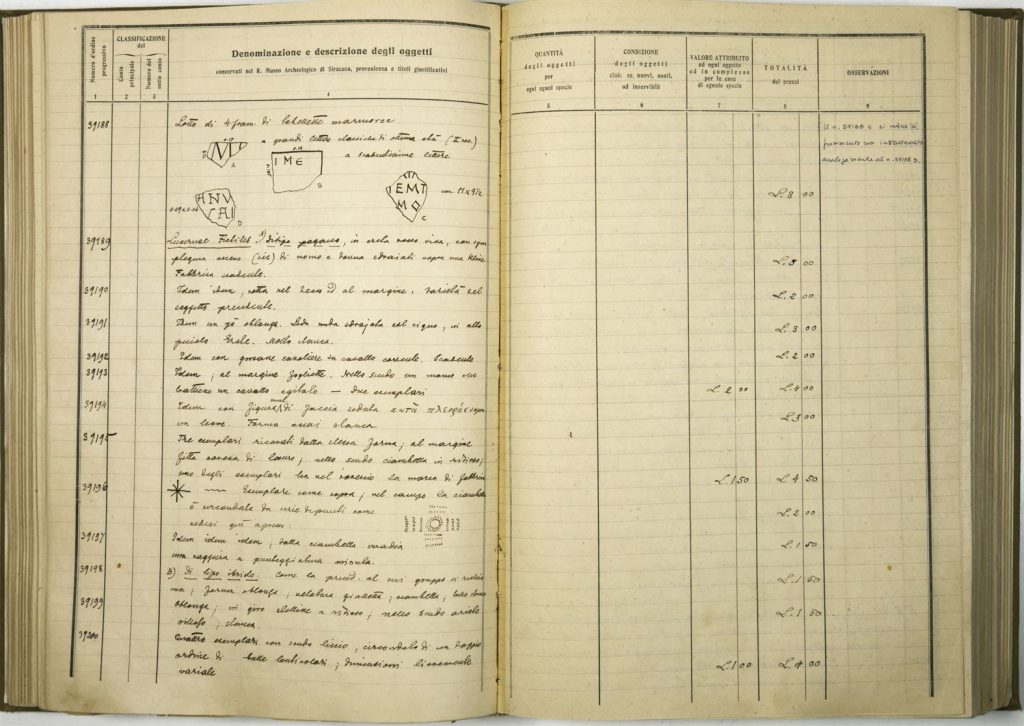 Numero d'ordine progressivo
CLASSIFICAZIONE del
Conto principale
Numero del sotto conto
Denominazione e descrizione degli oggetti
conservati nel R. Museo Archeologico di Siracusa, provenienza e titoli giustificativi
1 2 3 4
39188 Lotto di 4 fram. di lastrette marmoree
a grandi lettere classiche di ottima età (II sec.)
a scadentissime lettere
A
IME
B
IEMT
MO
C
cm. 11 x 9½
ANV
CAI
D
39189 Lucernae Fictiles: 1) di tipo pagano, in creta rosso viva, con
(sic) di uomo e donna sdraiati sopra una kline
Fabbrica scadente.
39190 Idem idem, rotta nel becco ed al margine. Varietà del
soggetto precedente.
39191 Idem un pò oblunga. Leda nuda sdraiata col cigno, in alto
piccolo Erote. Molto stanca.
39192 Idem con giovane cavaliere su cavallo corrente. Scadente
39193 Idem; al margine fogliette. Nello scudo un uomo che
trattiene un cavallo agitato — Due esemplari
39194 Idem con figura di faccia seduta κατὰ
un leone. Forma assai stanca
39195 Tre esemplari ricavati dalla stessa forma; al margine
fitta corona di lauro; nello scudo ciambella in rilievo;
uno degli esemplari ha nel rovescio la marca di fabbrica
39196 Esemplare come sopra; nel campo la ciambella
è circondata da serie di punti come
vedesi qui appresso:
39197 Idem idem idem; dalla ciambella irradia
una raggiera a punteggiatura minuta.
39198 B) Di tipo ibrido. Come la preced. al cui gruppo si
forma oblunga; ciambella;
39199 oblunga; in giro stelline a rilievo; nello scudo ariete
, stanca.
39200 Quattro esemplari con scudo liscio, circondato di un doppio
ordine di bolle lenticolari; dimensioni lievemente
variate
QUANTITÀ degli oggetti per ogni egual specie
CONDIZIONE degli oggetti cioè: se nuovi, usati, od inservibili
VALORE ATTRIBUITO ad ogni oggetto od in complesso per le cose di eguale specie
TOTALITÀ dei prezzi
OSSERVAZIONI
5 6 7 8 9
Il n. 39188 C si
frammento non inventariato
analogamente al n. 39188 D.
L. 3 00
L. 3 00
L. 2 00
L. 3 00
L. 2 00
L. 2 00 L. 4 00
L. 3 00
L. 1 50 L. 4 50
L. 2 00
L. 1 50
L. 1 50
L. 1 50
L. 1 00 L. 4 00